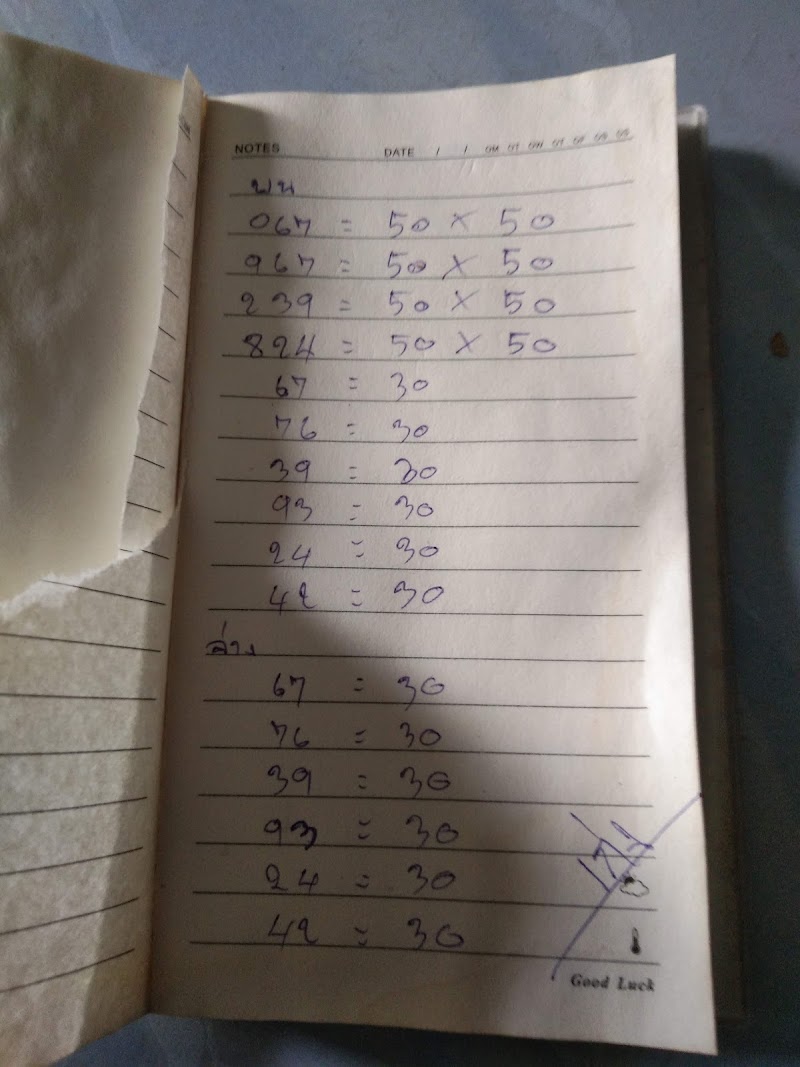 NOTES DATE / /
บน
067 = 50 × 50
967 = 50 × 50
239 = 50 × 50
824 = 50 × 50
67 = 30
76 = 30
39 = 30
93 = 30
24 = 30
42 = 30
ล่าง
67 = 30
76 = 30
39 = 30
93 = 30
24 = 30
42 = 30
Good Luck